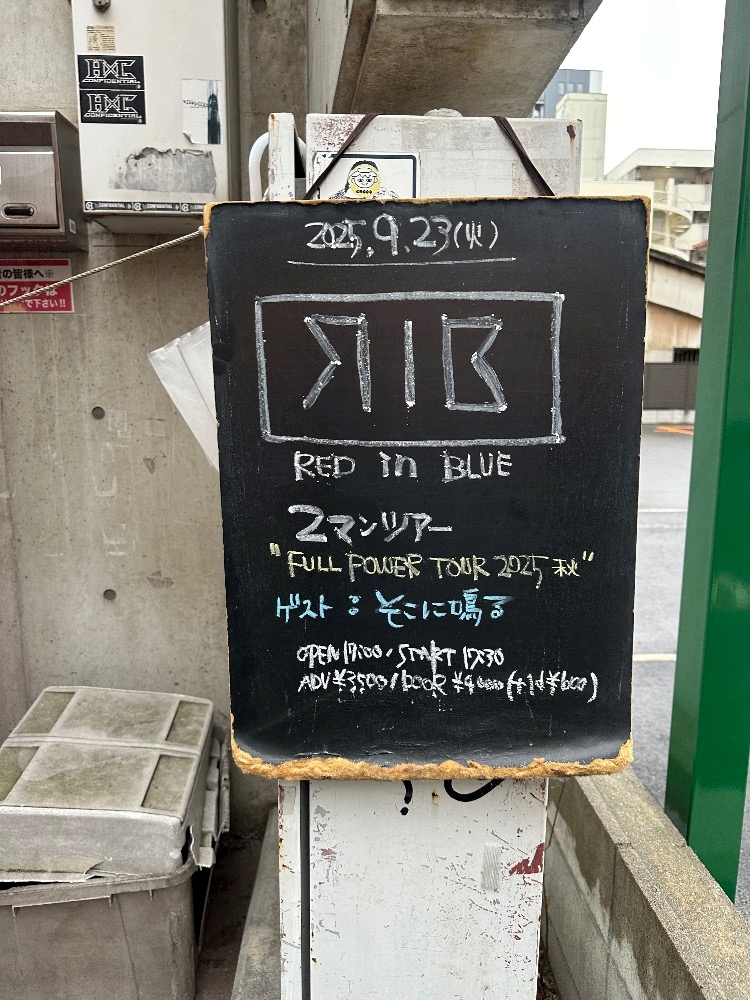 HXC
CONFIDENTIAL
HXC
CONFIDENTIAL
の皆様へ※
のフックは
で下さい!!
2025.9.23(火)
RIB
RED in BLUE
2マンツアー
"FULL POWER TOUR 2025 秋"
ゲスト：そこに鳴る
OPEN 17:00/START 17:30
ADV ¥3500/DOOR ¥4000(+1d¥600)